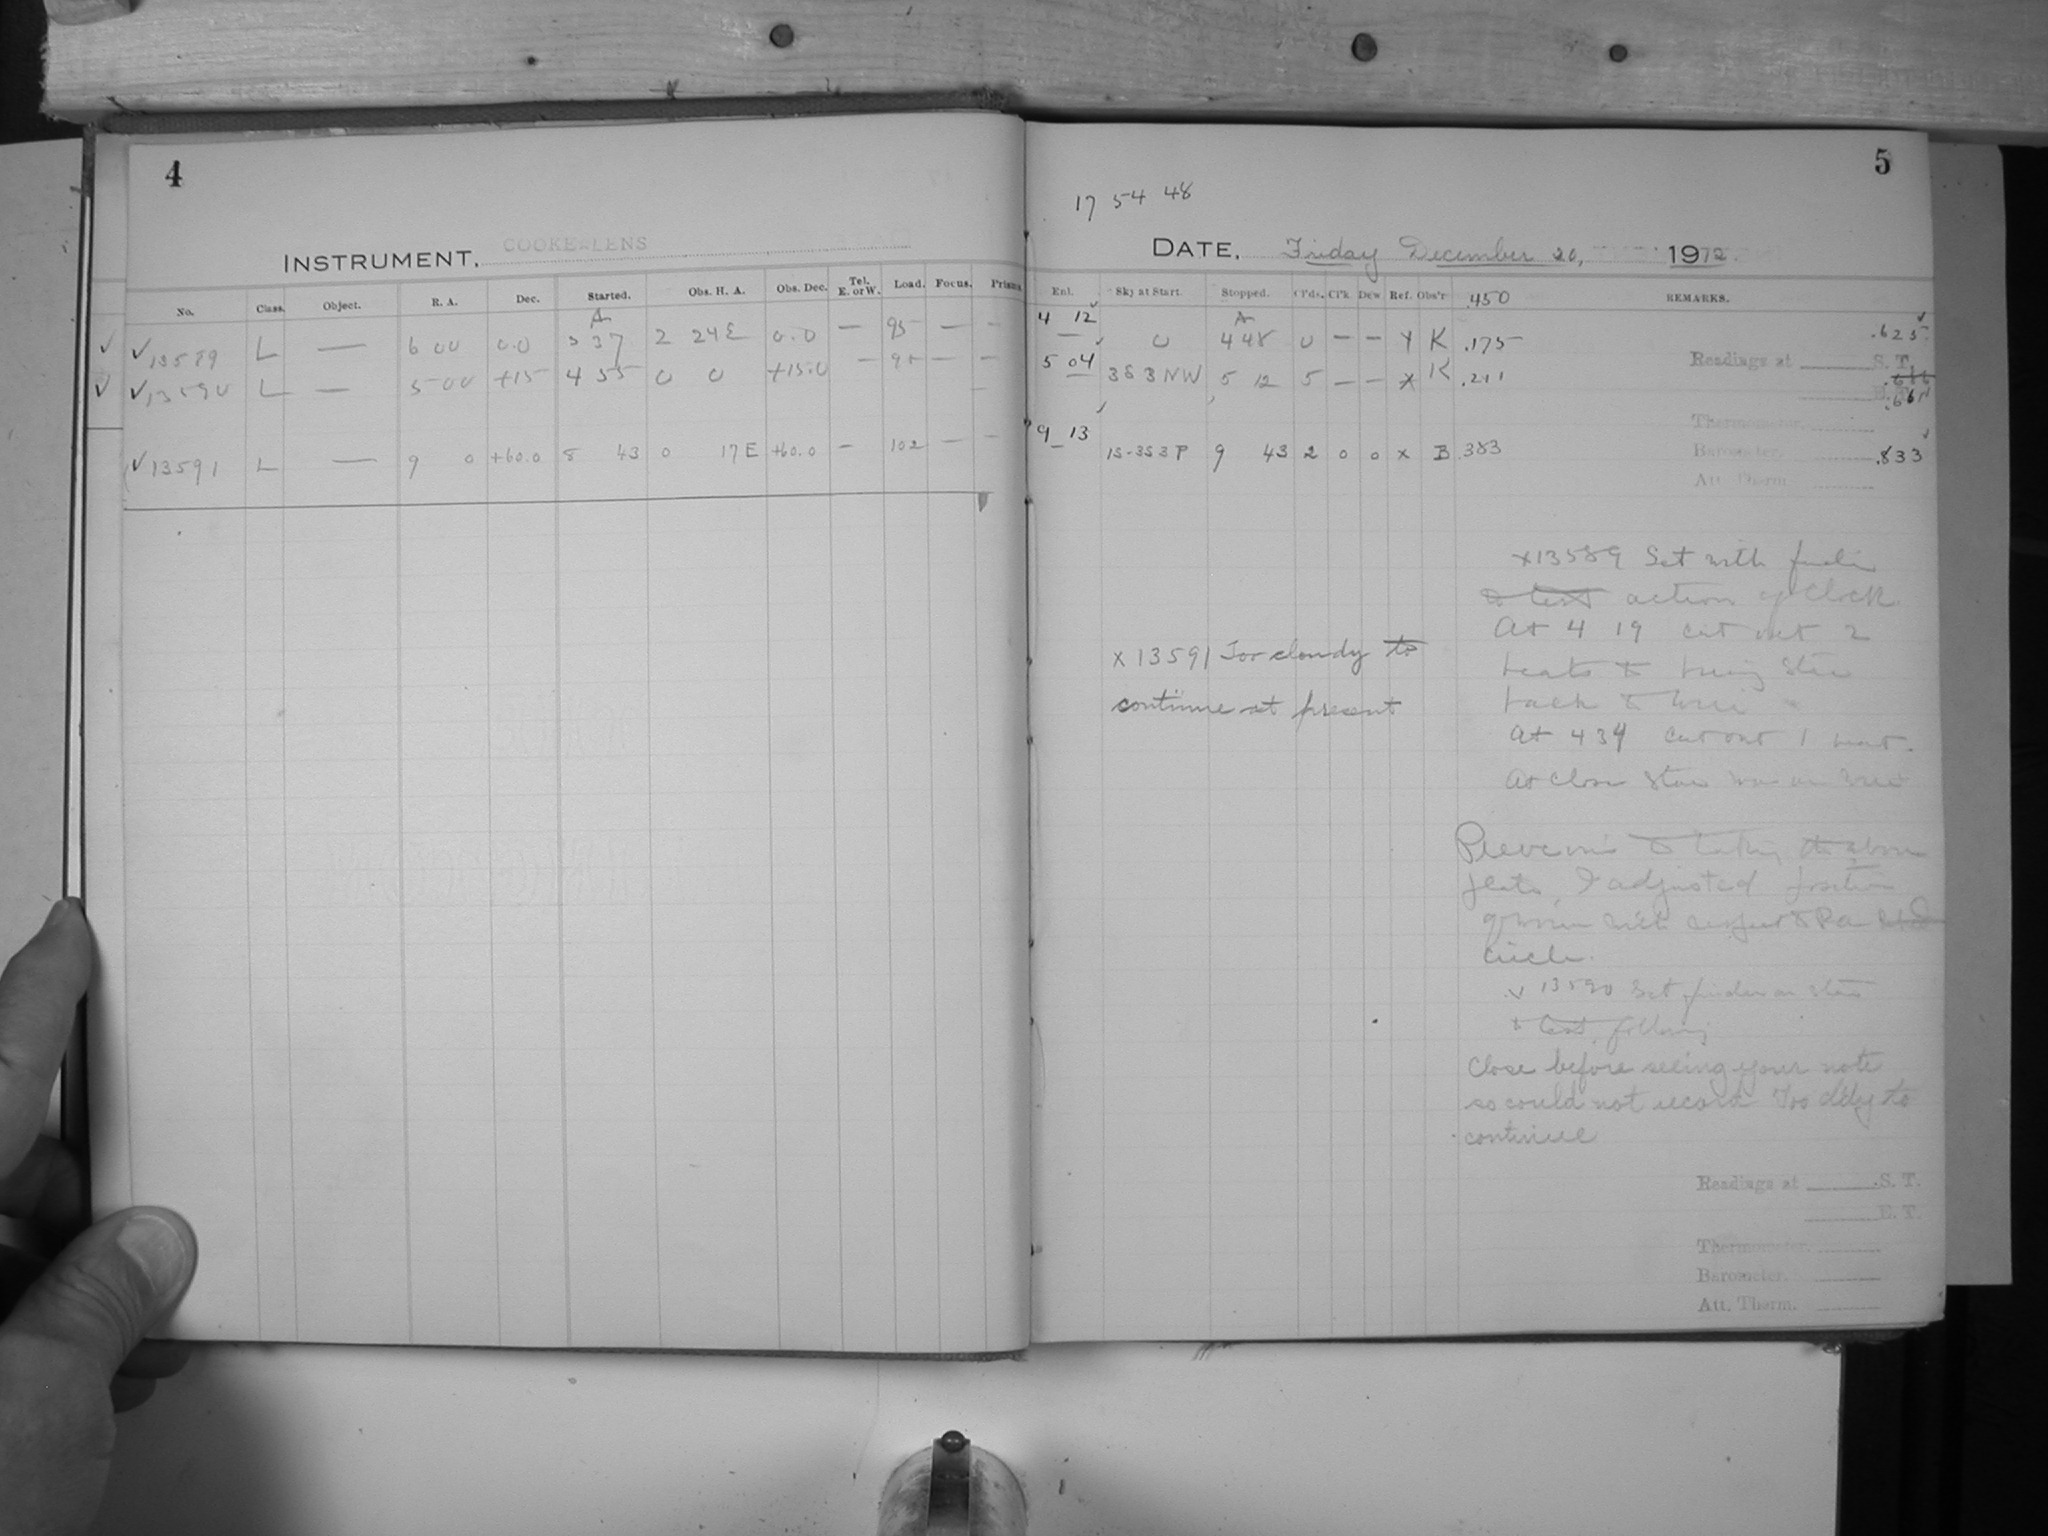 4
INSTRUMENT, COOKE LENS
No. Class. Object. R. A. Dec. Started. Obs. H. A. Obs. Dec. Tel. E. or W. Load. Focus. Prisms.
✓ ✓13589 L — 6 00 0.0 3 37 2 24E 0.0 — 95 — —
✓ ✓13590 L — 5 00 +15 4 55 0 0 +15.0 — 95 — —
✓13591 L — 9 0 +60.0 8 43 0 17E +60.0 — 102 — —
5
17 54 48
DATE, Friday December 20, 1912.
Enl. Sky at Start. Stopped. Cl'ds. Cl'k. Dew. Ref. Obs'r .450 REMARKS.
4 12 0 4 48 0 — — Y K .175 .625
Readings at S. T.
5 04 3S3NW 5 12 5 — — X K .211 .661
E. T.
Thermometer.
9 13 1S-3S3P 9 43 2 0 0 x B .383 Barometer. .833
Att. Therm.
x13589 Set with finder
to test action of clock.
At 4 19 cut out 2
beats to bring star
back to wire
x 13591 Too cloudy to
continue at present
At 434 cut out 1 beat.
At close star was on wire
Previous to taking the above
plate, I adjusted position
of wire with respect to
circle.
13590 Set finder on star
to test following
Close before seeing your note
so could not record Too cldy to
continue
Readings at S. T.
E. T.
Thermometer.
Barometer.
Att. Therm.